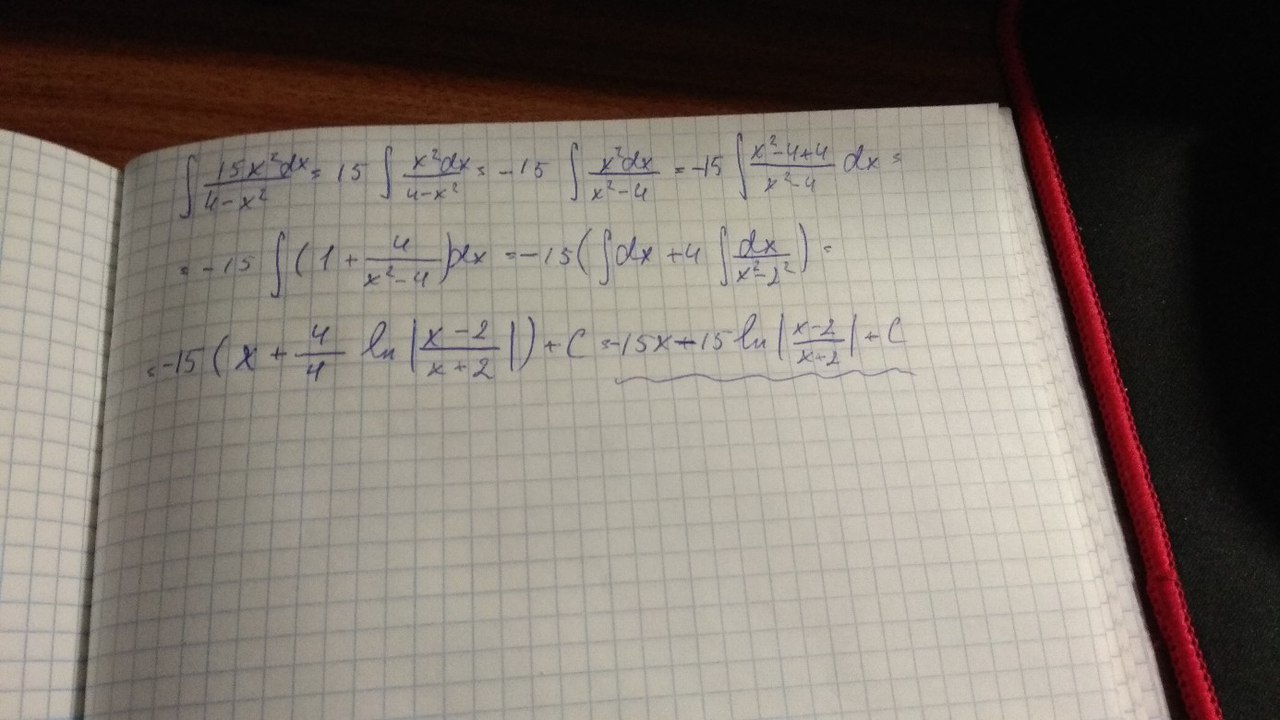 ∫ 15x²dx/(4-x²) = 15 ∫ x²dx/(4-x²) = -15 ∫ x²dx/(x²-4) = -15 ∫ (x²-4+4)/(x²-4) dx =
= -15 ∫ (1 + 4/(x²-4))dx = -15(∫dx + 4 ∫ dx/(x²-2²)) =
= -15(x + 4/4 ln|(x-2)/(x+2)|) + C = -15x-15 ln|(x-2)/(x+2)| + C